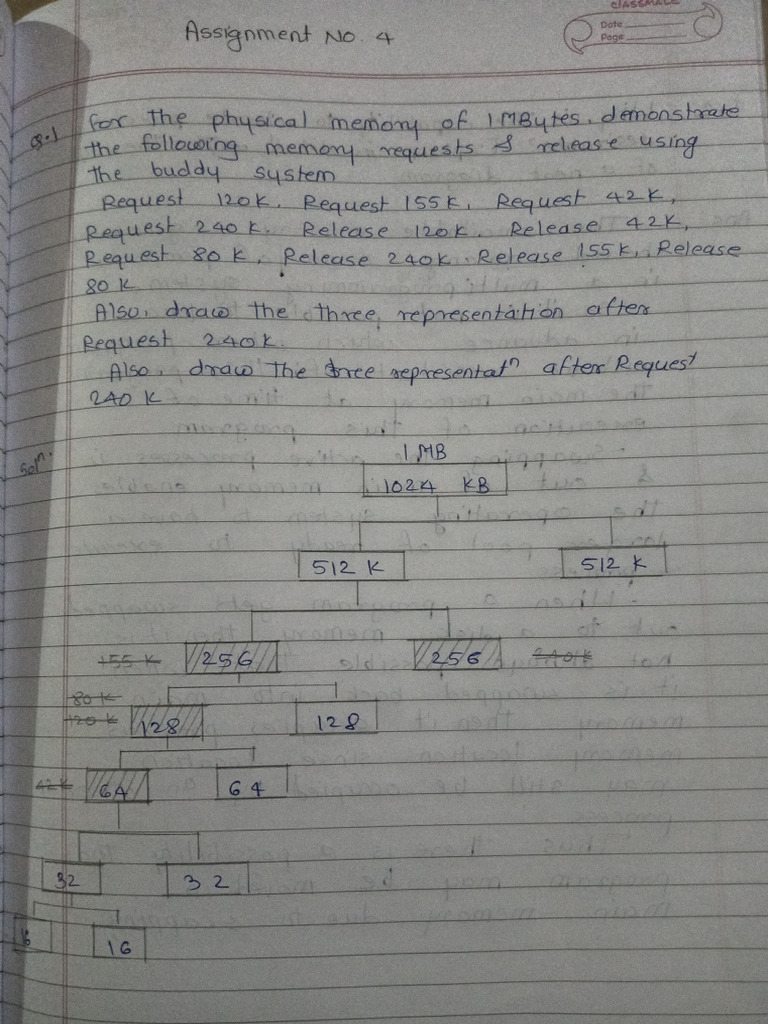 CLASSMATE
Assignment No. 4
Date
Page
Q.1 for the physical memory of 1MBytes. demonstrate
the following memory requests & release using
the buddy system
Request 120K. Request 155K, Request 42K,
Request 240K. Release 120K. Release 42K,
Request 80K, Release 240K. Release 155K, Release
80K
Also, draw the three representation after
Request 240K.
Also, draw the tree representatn after Request
240K
Soln.
1 MB
1024 KB
512 K 512 K
155 K 256 256 240K
80K
120K 128 128
42K 64 64
32 32
16 16